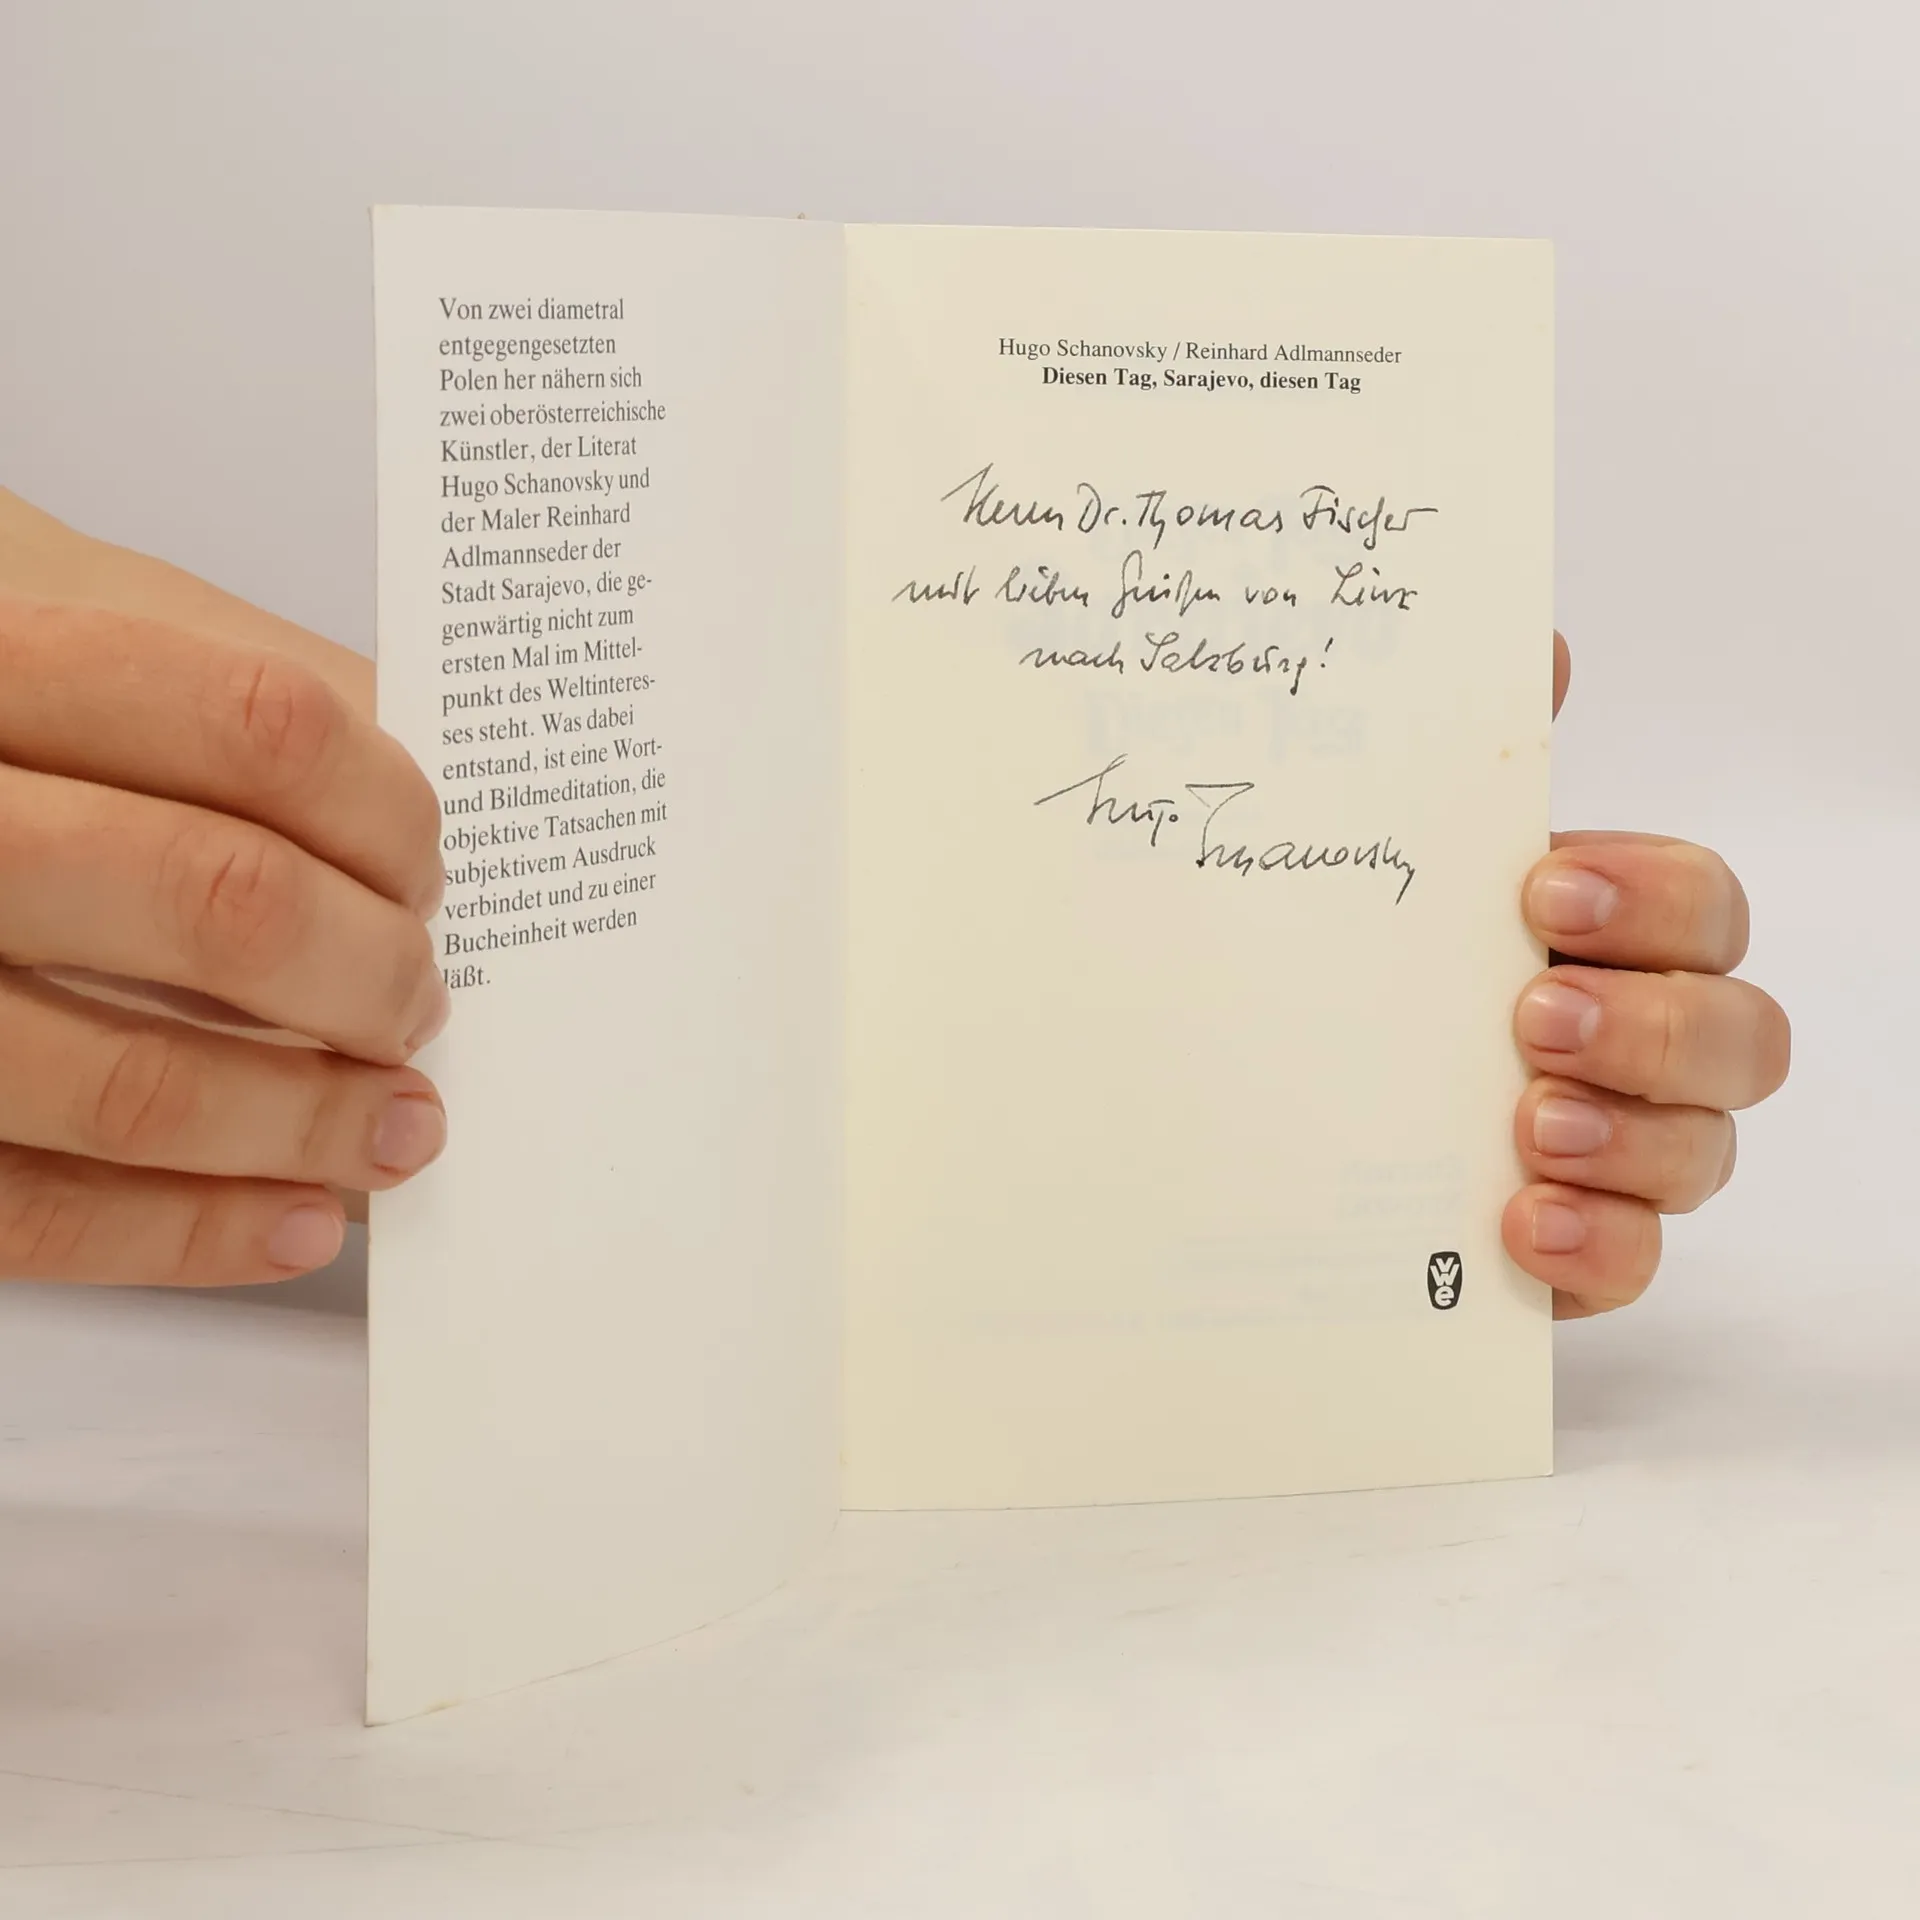 Von zwei diametral
entgegengesetzten
Polen her nähern sich
zwei oberösterreichische
Künstler, der Literat
Hugo Schanovsky und
der Maler Reinhard
Adlmannseder der
Stadt Sarajevo, die ge-
genwärtig nicht zum
ersten Mal im Mittel-
punkt des Weltinteres-
ses steht. Was dabei
entstand, ist eine Wort-
und Bildmeditation, die
objektive Tatsachen mit
subjektivem Ausdruck
verbindet und zu einer
Bucheinheit werden
läßt.
Hugo Schanovsky / Reinhard Adlmannseder
Diesen Tag, Sarajevo, diesen Tag
Herrn Dr. Thomas Fischer
mit lieben Grüßen von Linz
nach Salzburg!
Hugo Schanovsky
vwe